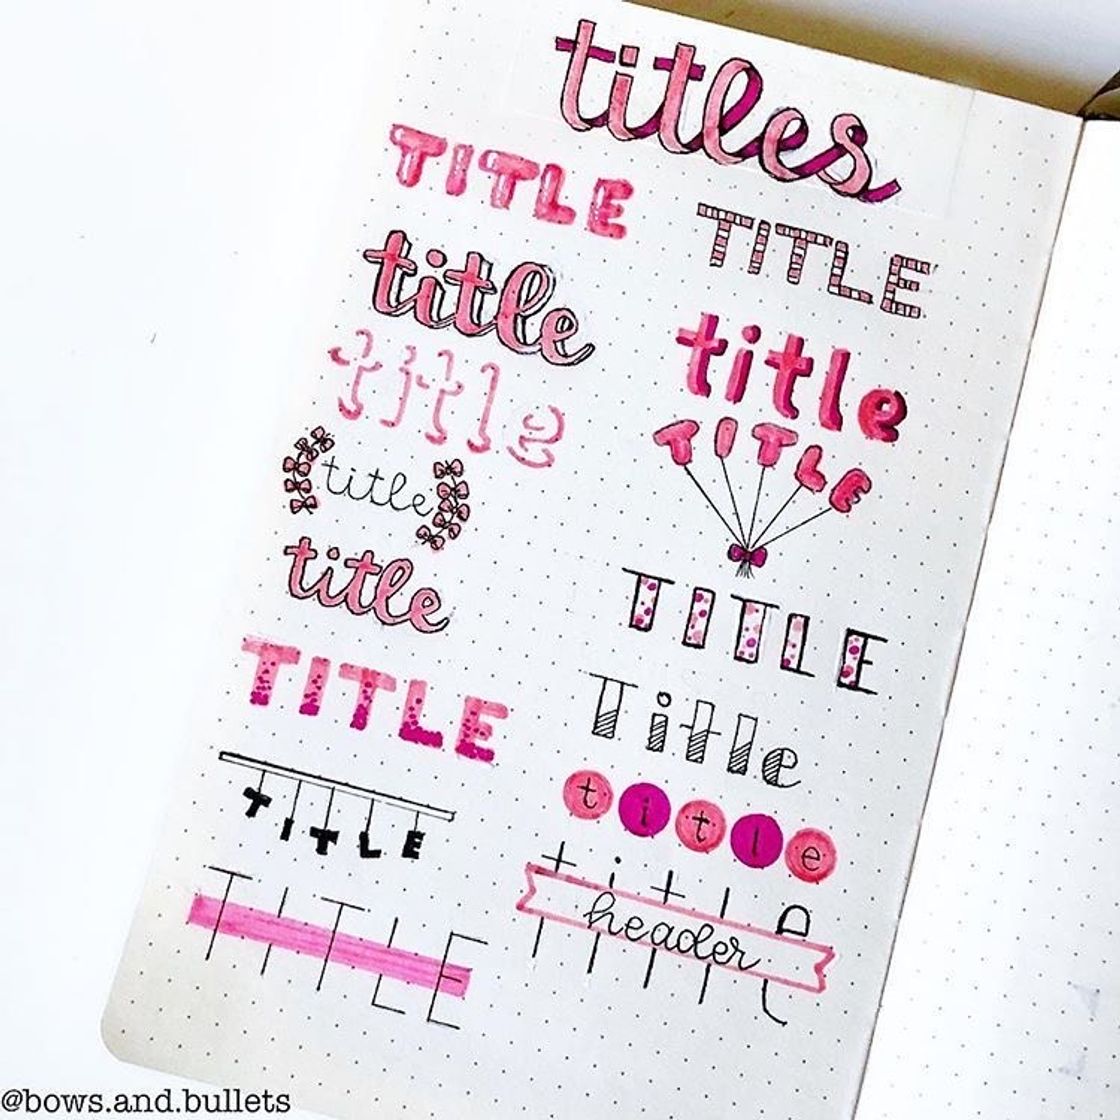 titles
TITLE
TITLE
title
title
title
TITLE
title
title
TITLE
TITLE
Title
TITLE
title
title
header
TITLE
@bows.and.bullets